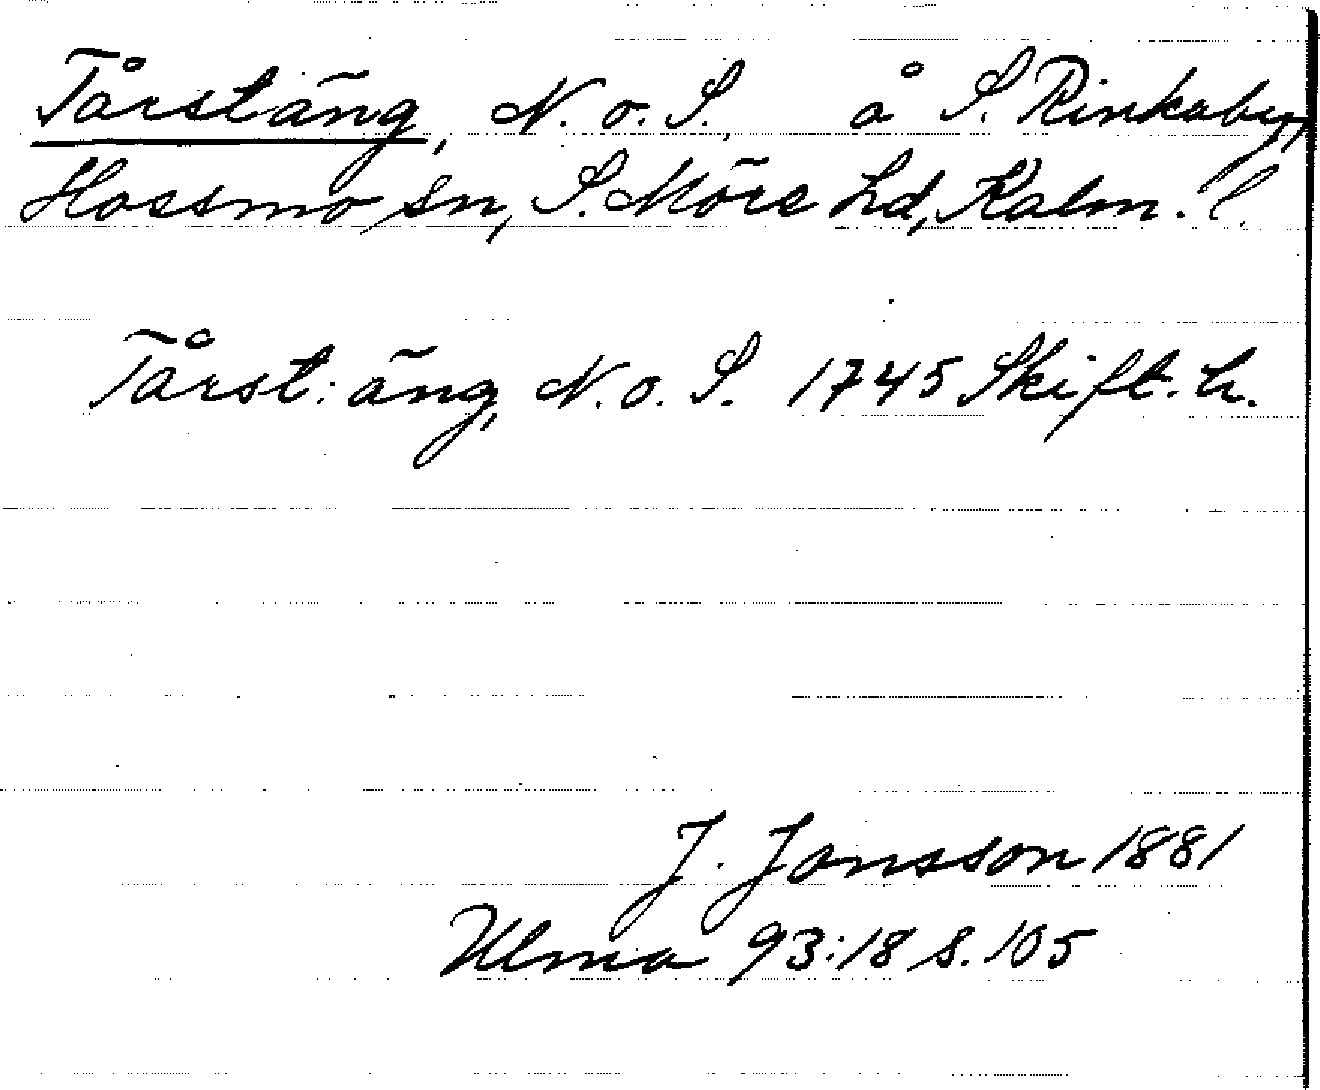 Tårstäng, N. o. S., å S. Rinkaby,
Hossmo sn, S. Möre hd, Kalm. l.
Tårst: äng, N. o. S. 1745 Skift. h.
J. Jonsson 1881
Ulma 93:18 s. 105